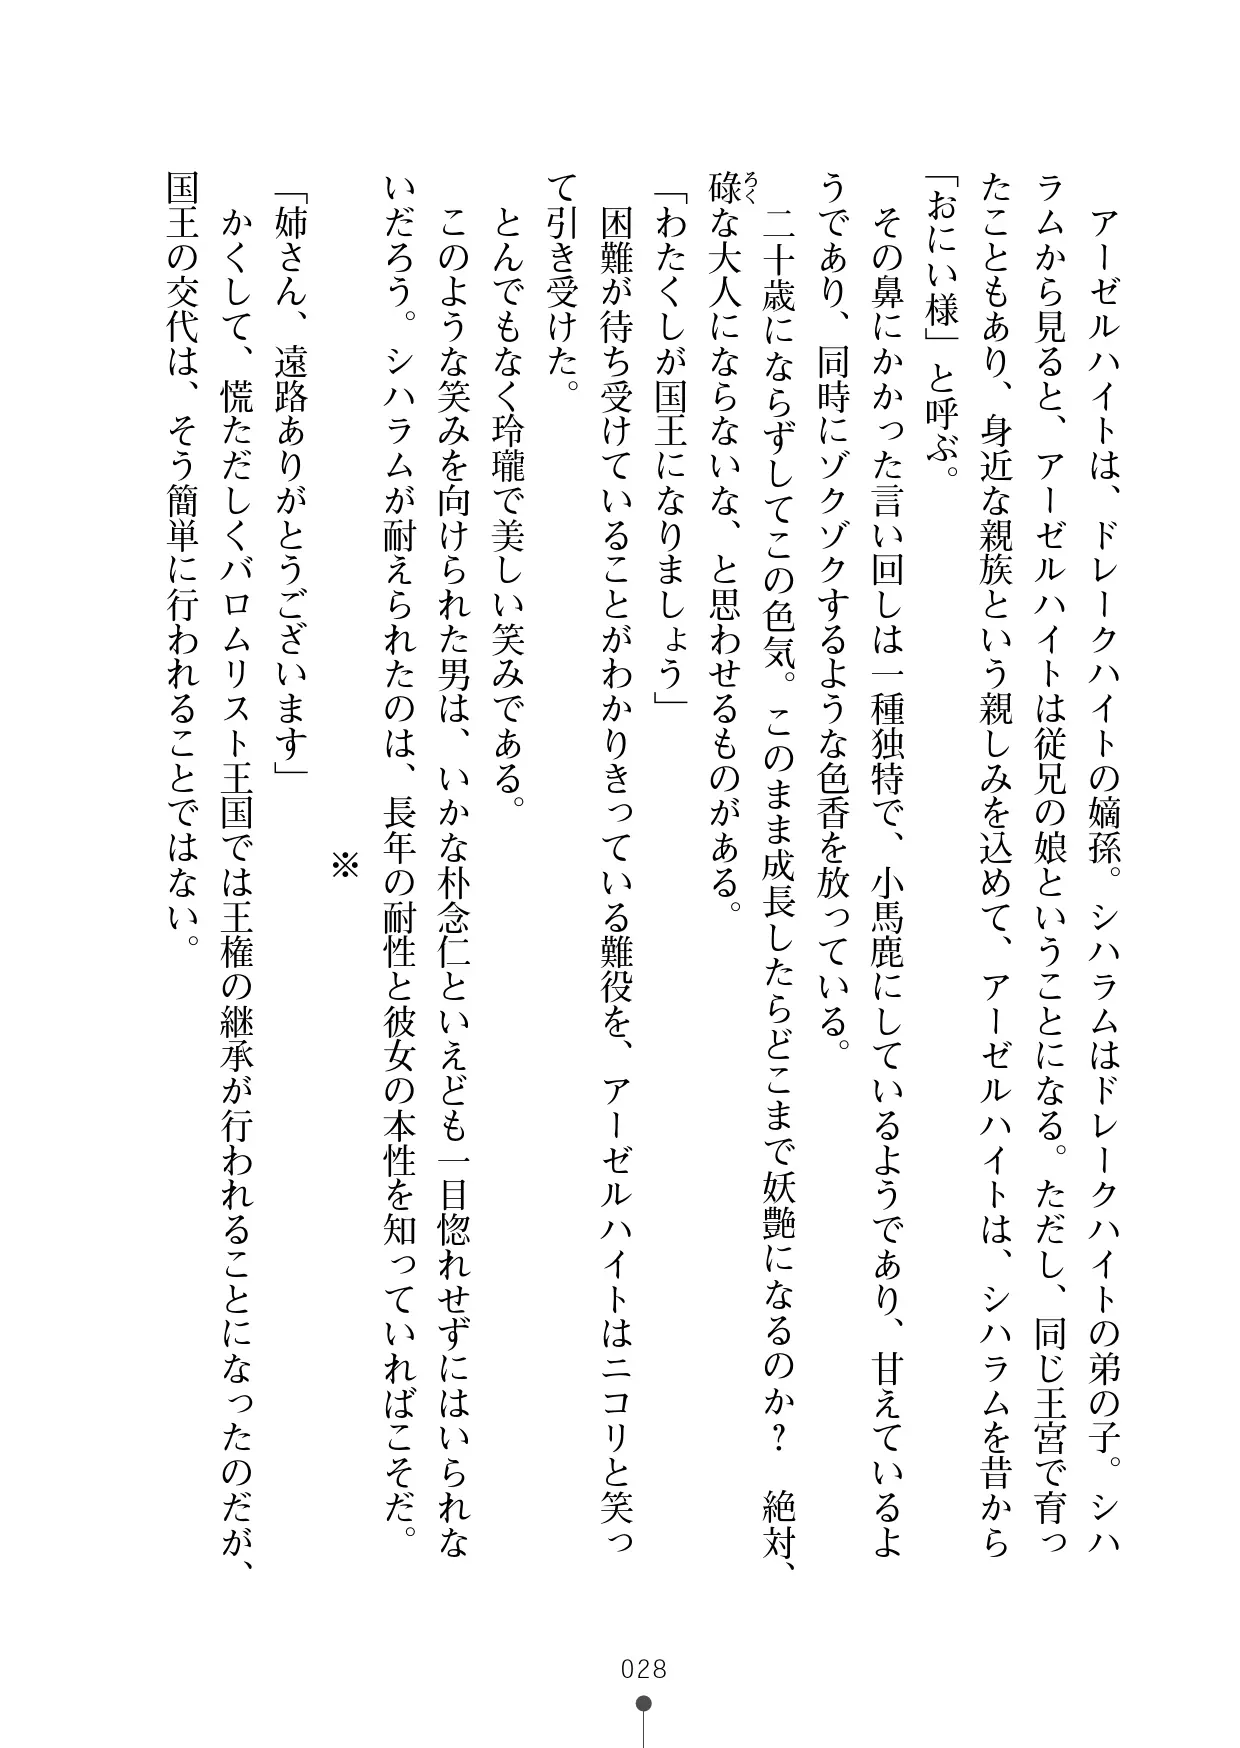 アーゼルハイトは、ドレークハイトの嫡孫。シハラムはドレークハイトの弟の子。シハ
ラムから見ると、アーゼルハイトは従兄の娘ということになる。ただし、同じ王宮で育っ
たこともあり、身近な親族という親しみを込めて、アーゼルハイトは、シハラムを昔から
「おにい様」と呼ぶ。
その鼻にかかった言い回しは一種独特で、小馬鹿にしているようであり、甘えているよ
うであり、同時にゾクゾクするような色香を放っている。
二十歳にならずしてこの色気。このまま成長したらどこまで妖艶になるのか？　絶対、
碌な大人にならないな、と思わせるものがある。
「わたくしが国王になりましょう」
困難が待ち受けていることがわかりきっている難役を、アーゼルハイトはニコリと笑っ
て引き受けた。
とんでもなく玲瓏で美しい笑みである。
このような笑みを向けられた男は、いかな朴念仁といえども一目惚れせずにはいられな
いだろう。シハラムが耐えられたのは、長年の耐性と彼女の本性を知っていればこそだ。
※
「姉さん、遠路ありがとうございます」
かくして、慌ただしくバロムリスト王国では王権の継承が行われることになったのだが、
国王の交代は、そう簡単に行われることではない。
028